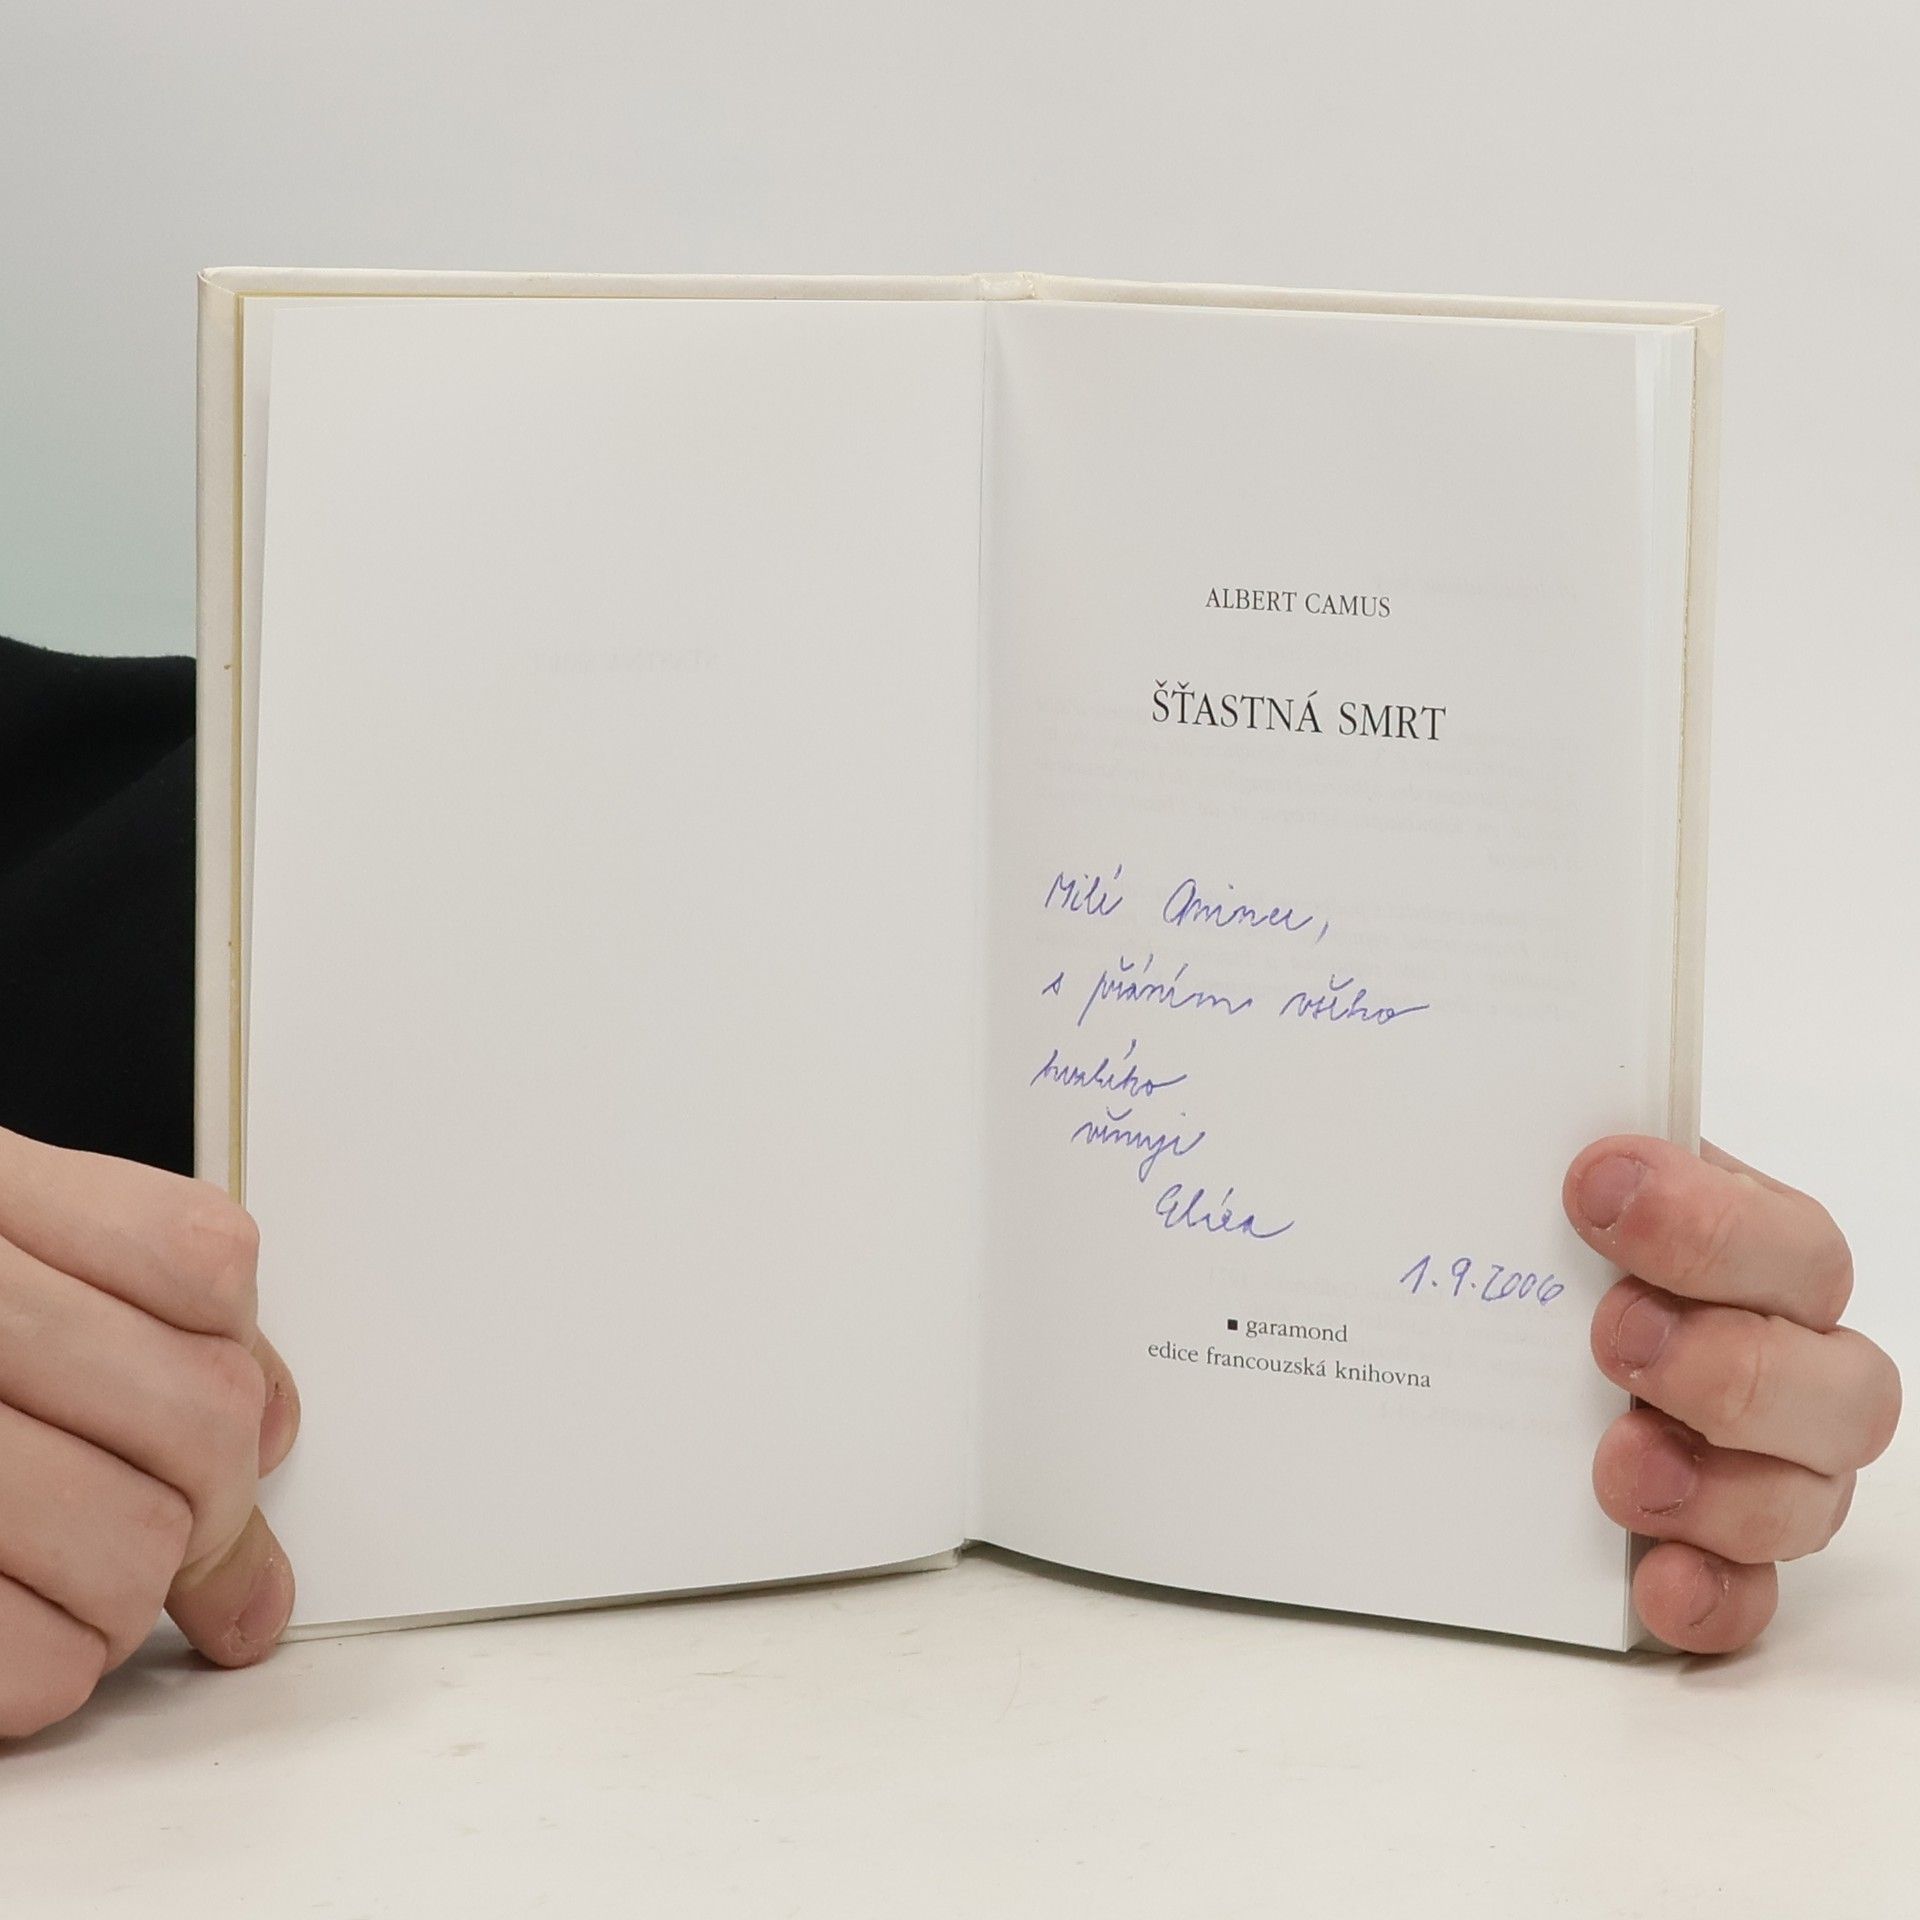 ALBERT CAMUS
ŠŤASTNÁ SMRT
Milé Anince,
s přáním všeho
hezkého
věnuje
1.9.2006
■ garamond
edice francouzská knihovna